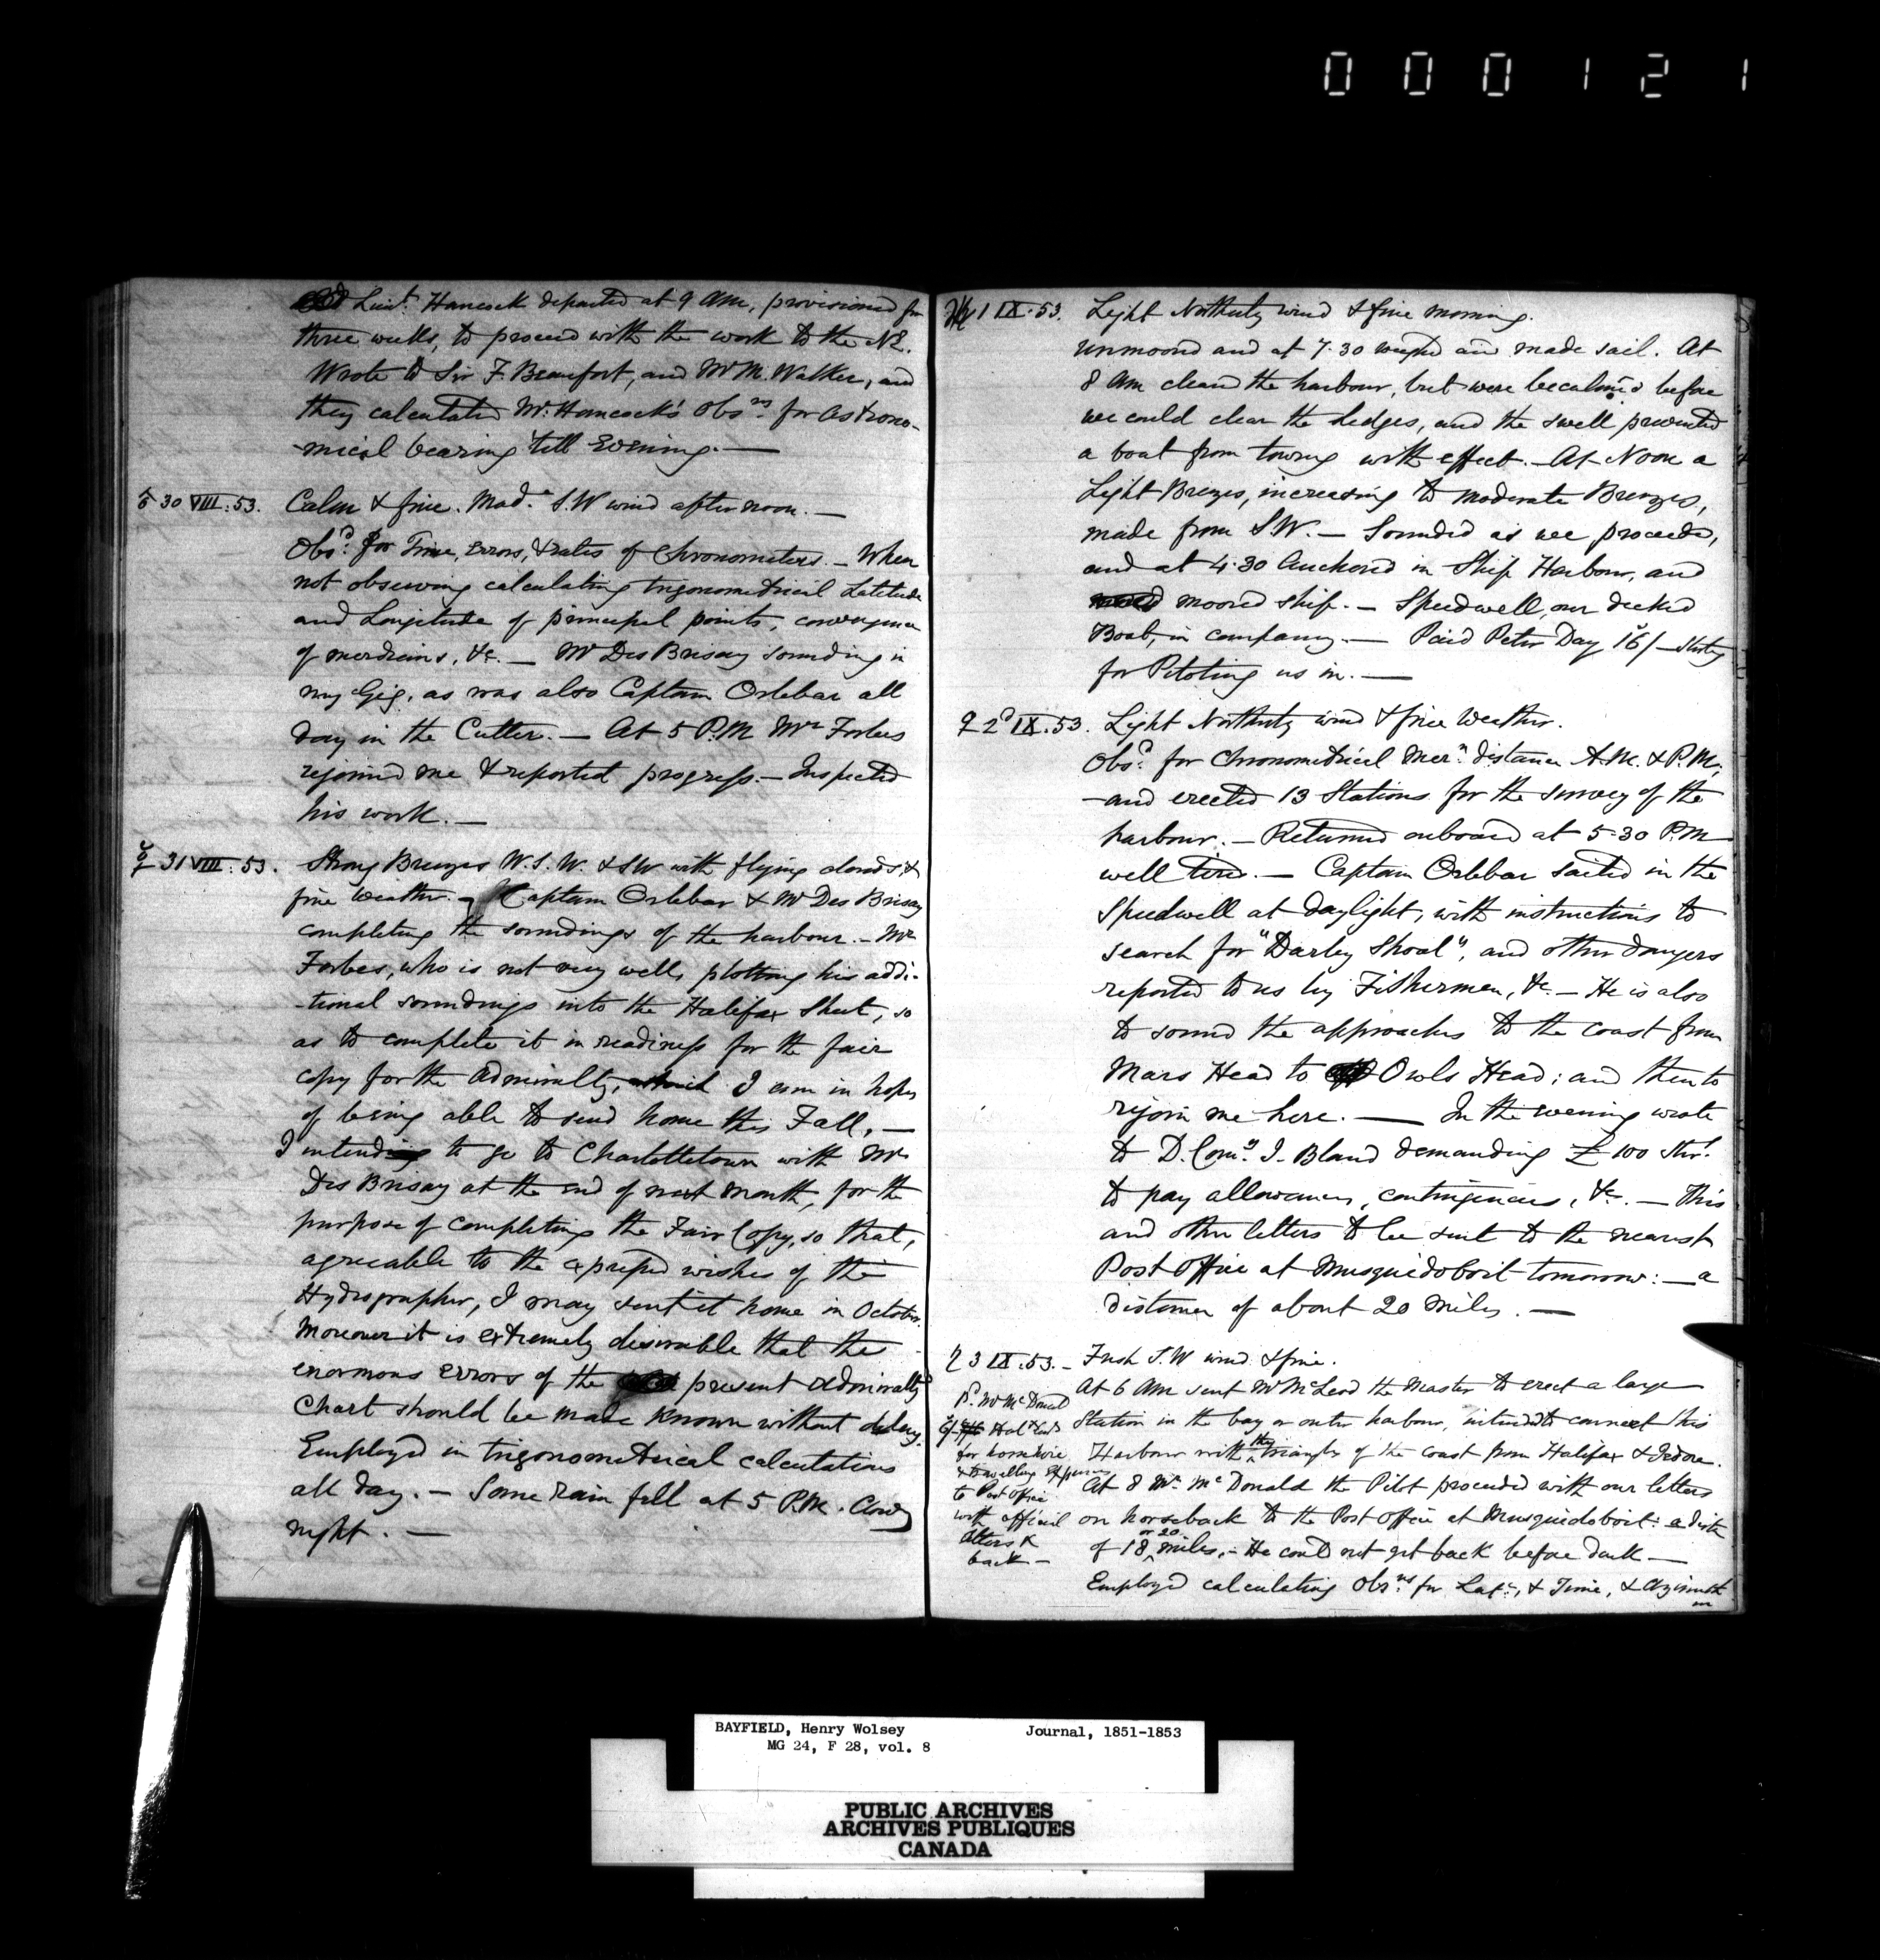 000121
Lieut. Hancock departed at 9 AM, provisioned for
three weeks, to proceed with the work to the NE.
Wrote to Sir F. Beaufort, and Mr M. Walker, and
they calculated Mr. Hancock's Obsns. for Astrono-
-mical bearing 'till Evening. —
♂ 30 VIII. 53. Calm & fine. Mode. S.W wind afternoon. —
Obsd. for Time, Errors, & rates of Chronometers. — When
not observing calculating trigonometrical Latitude
and Longitude of principal points, convergence
of meridians, &c. — Mr Des Brisay sounding in
my Gig, as was also Captain Orlebar all
day in the Cutter. — At 5 P.M Mr Forbes
rejoined me & reported progress. — Inspected
his work. —
☿ 31 VIII. 53. Strong Breezes W.S.W. & SW with flying clouds, &
fine Weather. — Captain Orlebar & Mr Des Brisay
completing the soundings of the harbour. — Mr
Forbes, who is not very well, plotting his addi-
-tional soundings into the Halifax Sheet, so
as to complete it in readiness for the fair
copy for the Admiralty, which I am in hopes
of being able to send home this Fall, —
I intend to go to Charlottetown with Mr
Des Brisay at the end of next Month, for the
purpose of completing the Fair Copy, so that,
agreeable to the expressed wishes of the
Hydrographer, I may send it home in October.
Moreover it is extremely desirable that the
enormous errors of the present Admiralty
Chart should be made known without delay.
Employed in trigonometrical calculations
all day. — Some Rain fell at 5 P.M. Cloudy
night. —
♃ 1 IX. 53. Light Northerly wind & fine morning.
Unmoored and at 7.30 weighed and made sail. At
8 AM cleared the harbour, but were becalmed before
we could clear the Ledges, and the swell prevented
a boat from towing with effect. — At Noon a
Light Breezes, increasing to moderate Breezes,
made from SW. — Sounded as we proceeded,
and at 4.30 Anchored in Ship Harbour, and
moored ship. — Speedwell, our decked
Boat, in company. — Paid Peter Day 16/– Sterlg
for Piloting us in. —
♀ 2d IX. 53. Light Northerly wind & fine Weather.
Obsd. for Chronometrical Mern. distance A.M. & P.M;
— and erected 13 Stations for the survey of the
harbour. — Returned onboard at 5.30 P.M
well tired. — Captain Orlebar sailed in the
Speedwell at daylight, with instructions to
search for "Darby Shoal", and other dangers
reported to us by Fishermen, &c. — He is also
to sound the approaches to the coast from
Mars Head to Owls Head; and then to
rejoin me here. — In the evening wrote
to D. Comy. I. Bland demanding £100 Str.
to pay allowances, contingencies, &c. — This
and other letters to be sent to the nearest
Post Office at Musquidoboit tomorrow: — a
distance of about 20 miles. —
♄ 3 IX. 53. — Fresh S.W wind & fine.
At 6 AM sent Mr McLeod the Master to erect a large
Station in the bay or outer harbour, intended to connect this
Harbour with the triangles of the coast from Halifax & Jedore.
At 8 Mr. McDonald the Pilot proceeded with our letters
on horseback to the Post Office at Musquidoboit: a distce
of 18 or 20 miles, — He could not get back before dark —
Employed calculating Obsns for Late., & Time, & Azimuth
Pd. Mr McDonald
for horse hire
& travelling expences
to Post Office
with official
letters &
back —
BAYFIELD, Henry Wolsey Journal, 1851-1853
MG 24, F 28, vol. 8
PUBLIC ARCHIVES
ARCHIVES PUBLIQUES
CANADA